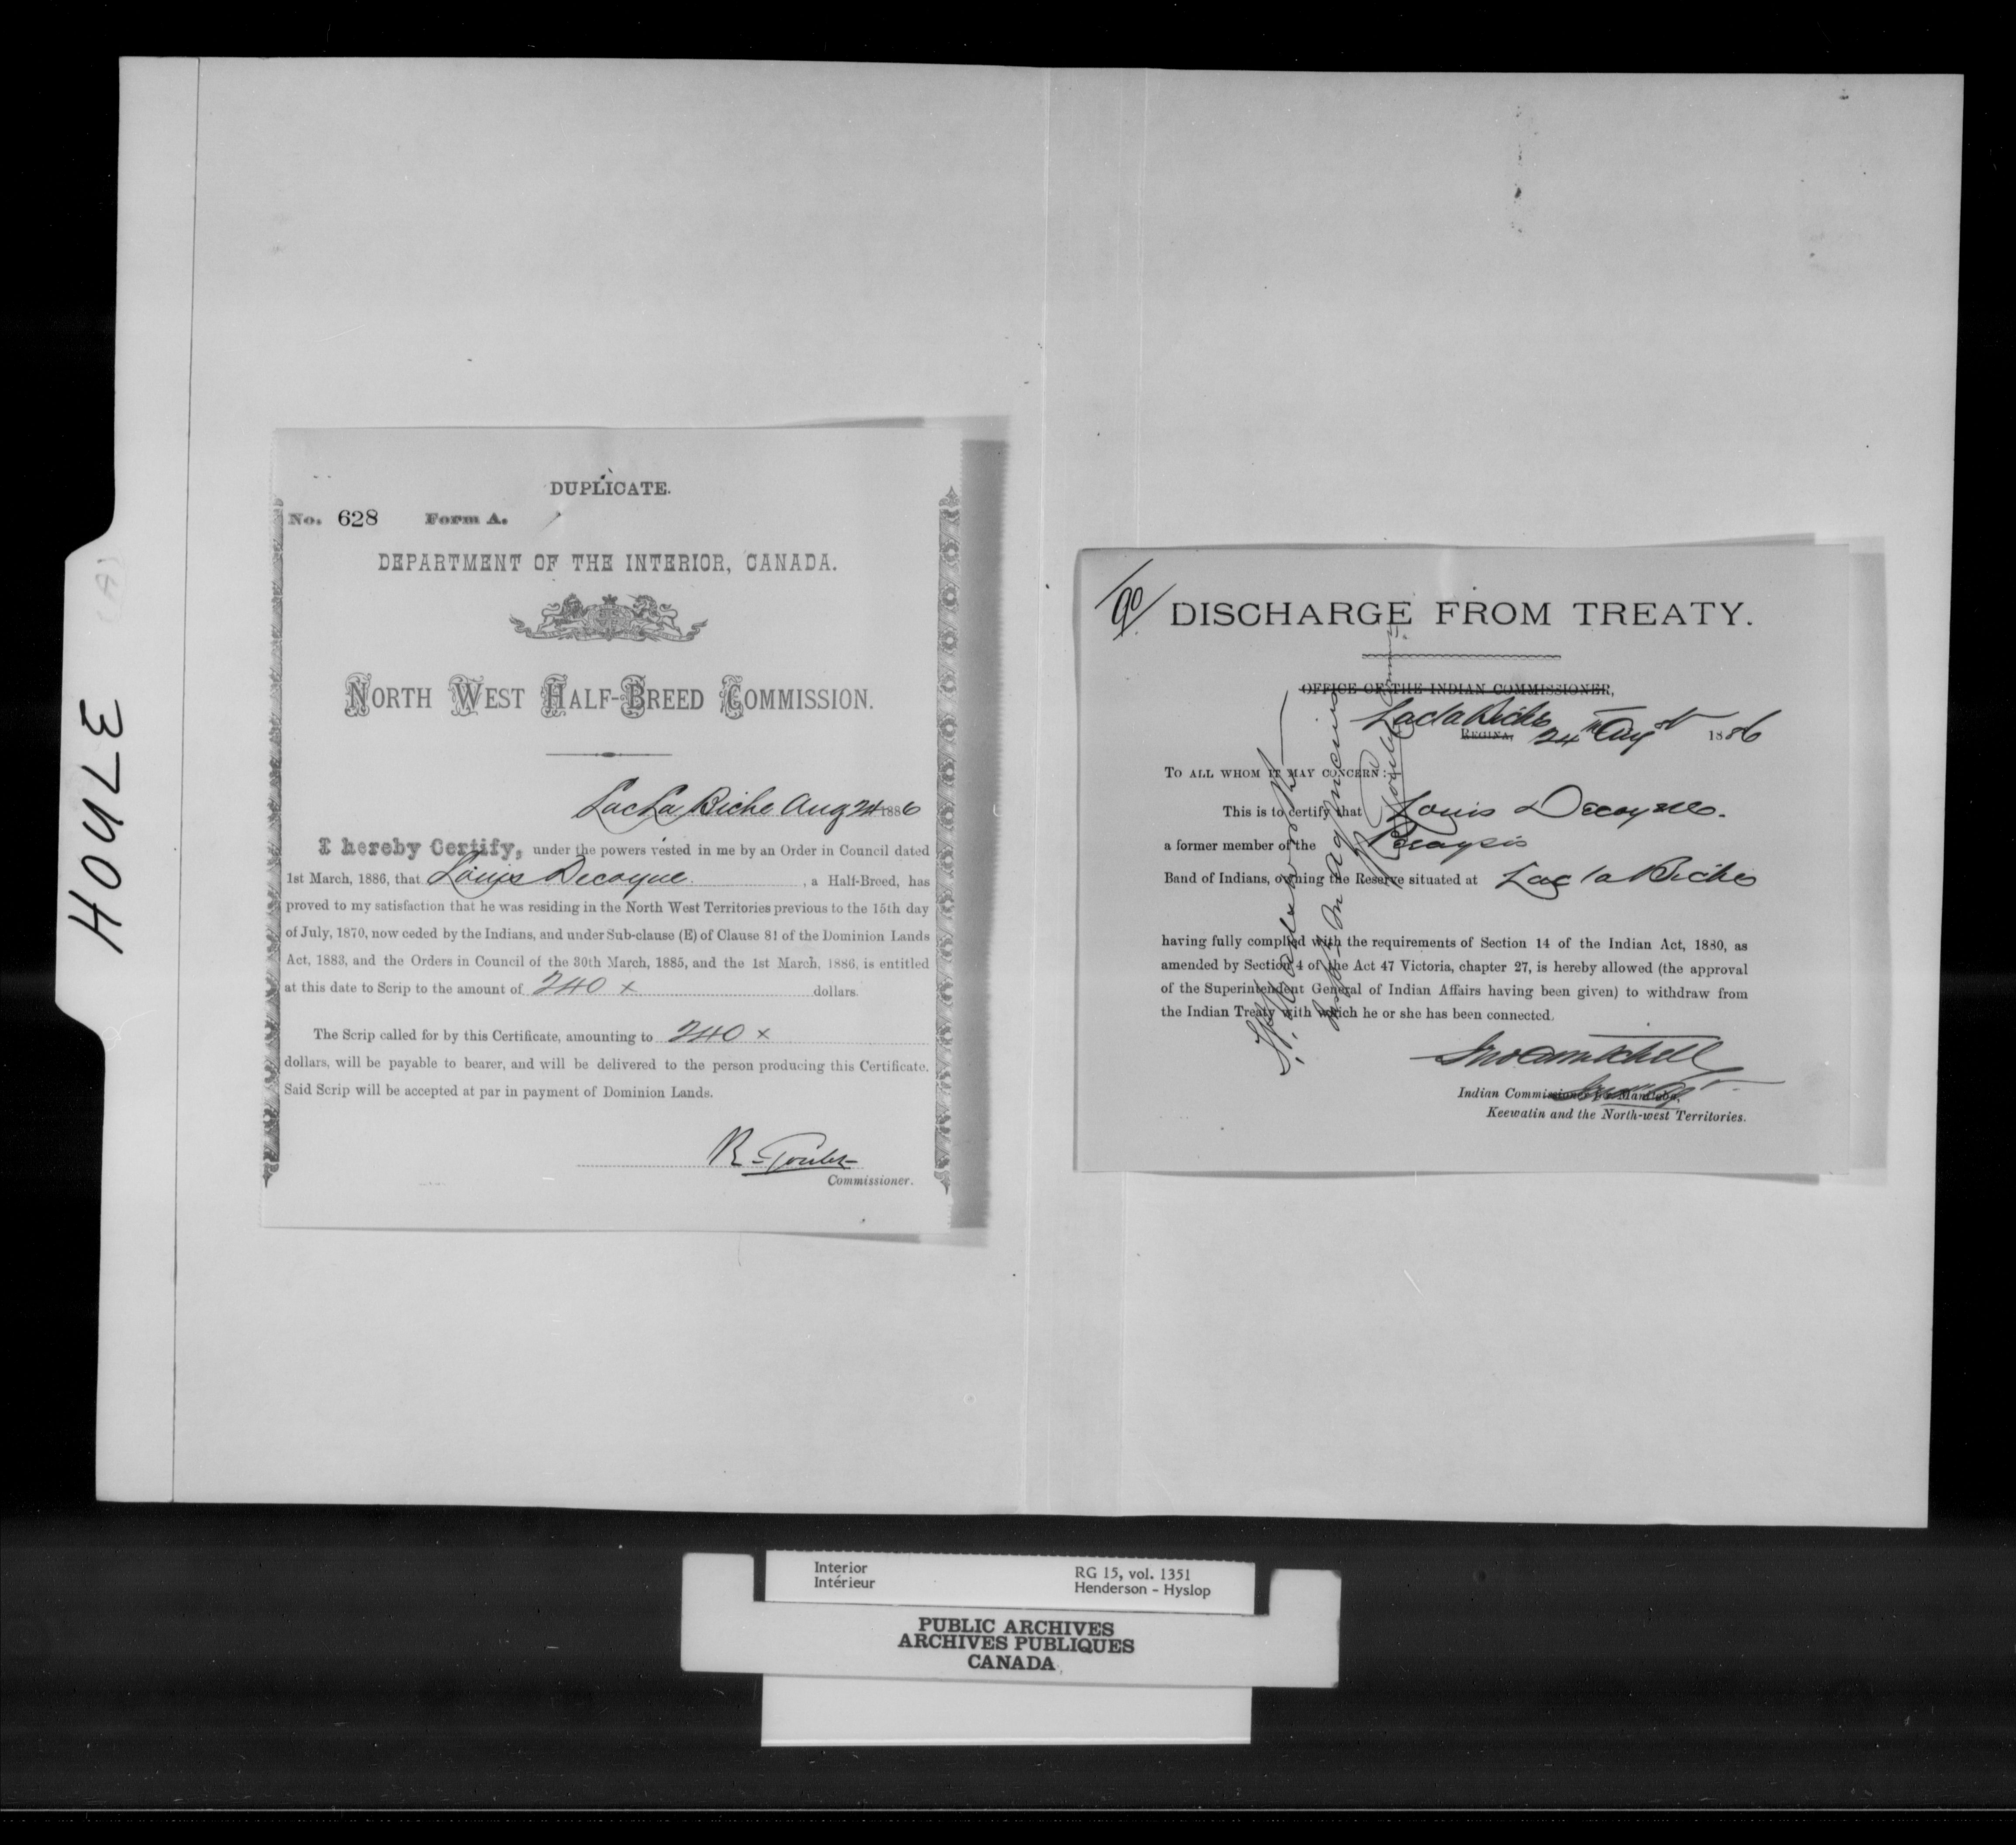 HOLE
DUPLICATE.
No. 628 Form A.
DEPARTMENT OF THE INTERIOR, CANADA.
NORTH WEST HALF-BREED COMMISSION.
Lac La Biche Aug 24 1886
I hereby Certify, under the powers vested in me by an Order in Council dated
1st March, 1886, that Louis Decoyne, a Half-Breed, has
proved to my satisfaction that he was residing in the North West Territories previous to the 15th day
of July, 1870, now ceded by the Indians, and under Sub-clause (E) of Clause 81 of the Dominion Lands
Act, 1883, and the Orders in Council of the 30th March, 1885, and the 1st March, 1886, is entitled
at this date to Scrip to the amount of 240 x dollars.
The Scrip called for by this Certificate, amounting to 240 x
dollars, will be payable to bearer, and will be delivered to the person producing this Certificate.
Said Scrip will be accepted at par in payment of Dominion Lands.
R Goulet
Commissioner.
90
DISCHARGE FROM TREATY.
OFFICE OF THE INDIAN COMMISSIONER,
Lac la Biche
REGINA, 24th Augst 1886
TO ALL WHOM IT MAY CONCERN:
This is to certify that Louis Decoyne.
a former member of the Peaysis
Band of Indians, owning the Reserve situated at Lac la Biche
having fully complied with the requirements of Section 14 of the Indian Act, 1880, as
amended by Section 4 of the Act 47 Victoria, chapter 27, is hereby allowed (the approval
of the Superintendent General of Indian Affairs having been given) to withdraw from
the Indian Treaty with which he or she has been connected.
Indian Commissioner for Manitoba,
Keewatin and the North-west Territories.
Interior
Intérieur
RG 15, vol. 1351
Henderson - Hyslop
PUBLIC ARCHIVES
ARCHIVES PUBLIQUES
CANADA